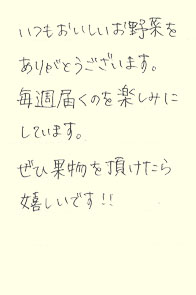 いつもおいしいお野菜を
ありがとうございます。
毎週届くのを楽しみに
しています。
ぜひ果物を頂けたら
嬉しいです!!